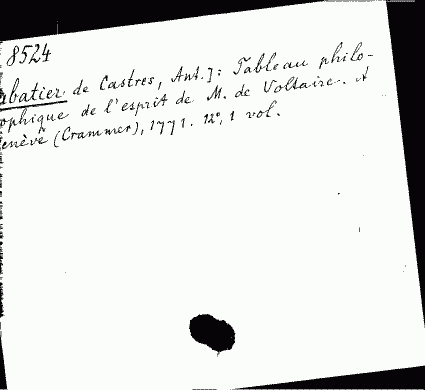 8524
abatier de Castres, Ant.]: Tableau philo-
ophique de l'esprit de M. de Voltaire. A
enève (Crammer), 1771. 12°, 1 vol.